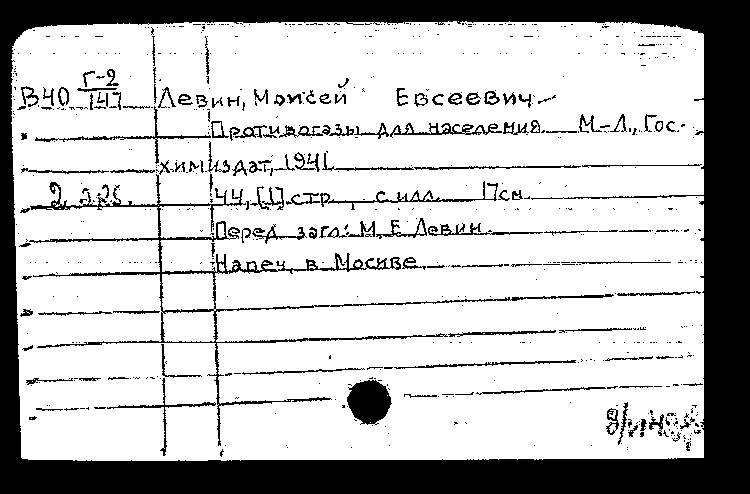 В40 Г-2/147 Левин, Моисей Евсеевич
Противогазы для населения. М-Л., Гос-
химиздат, 1941.
44, [1] стр., с илл. 17см.
Перед загл: М. Е. Левин.
Напеч. в Москве.